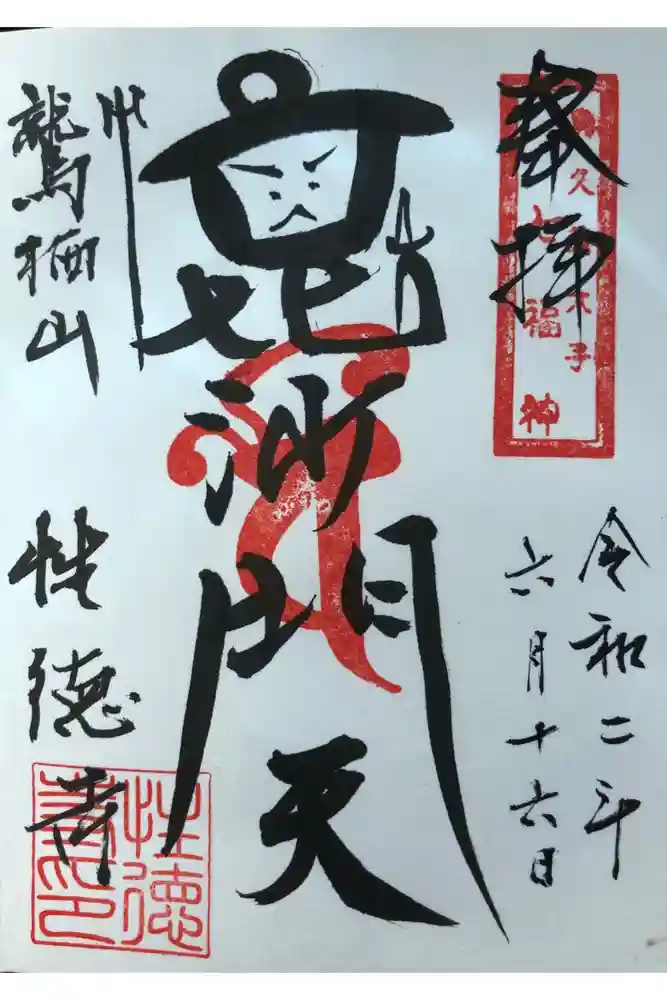 奉拝
七福神
令和二年
六月十六日
毘沙門天
鷲栖山
性徳寺
性徳